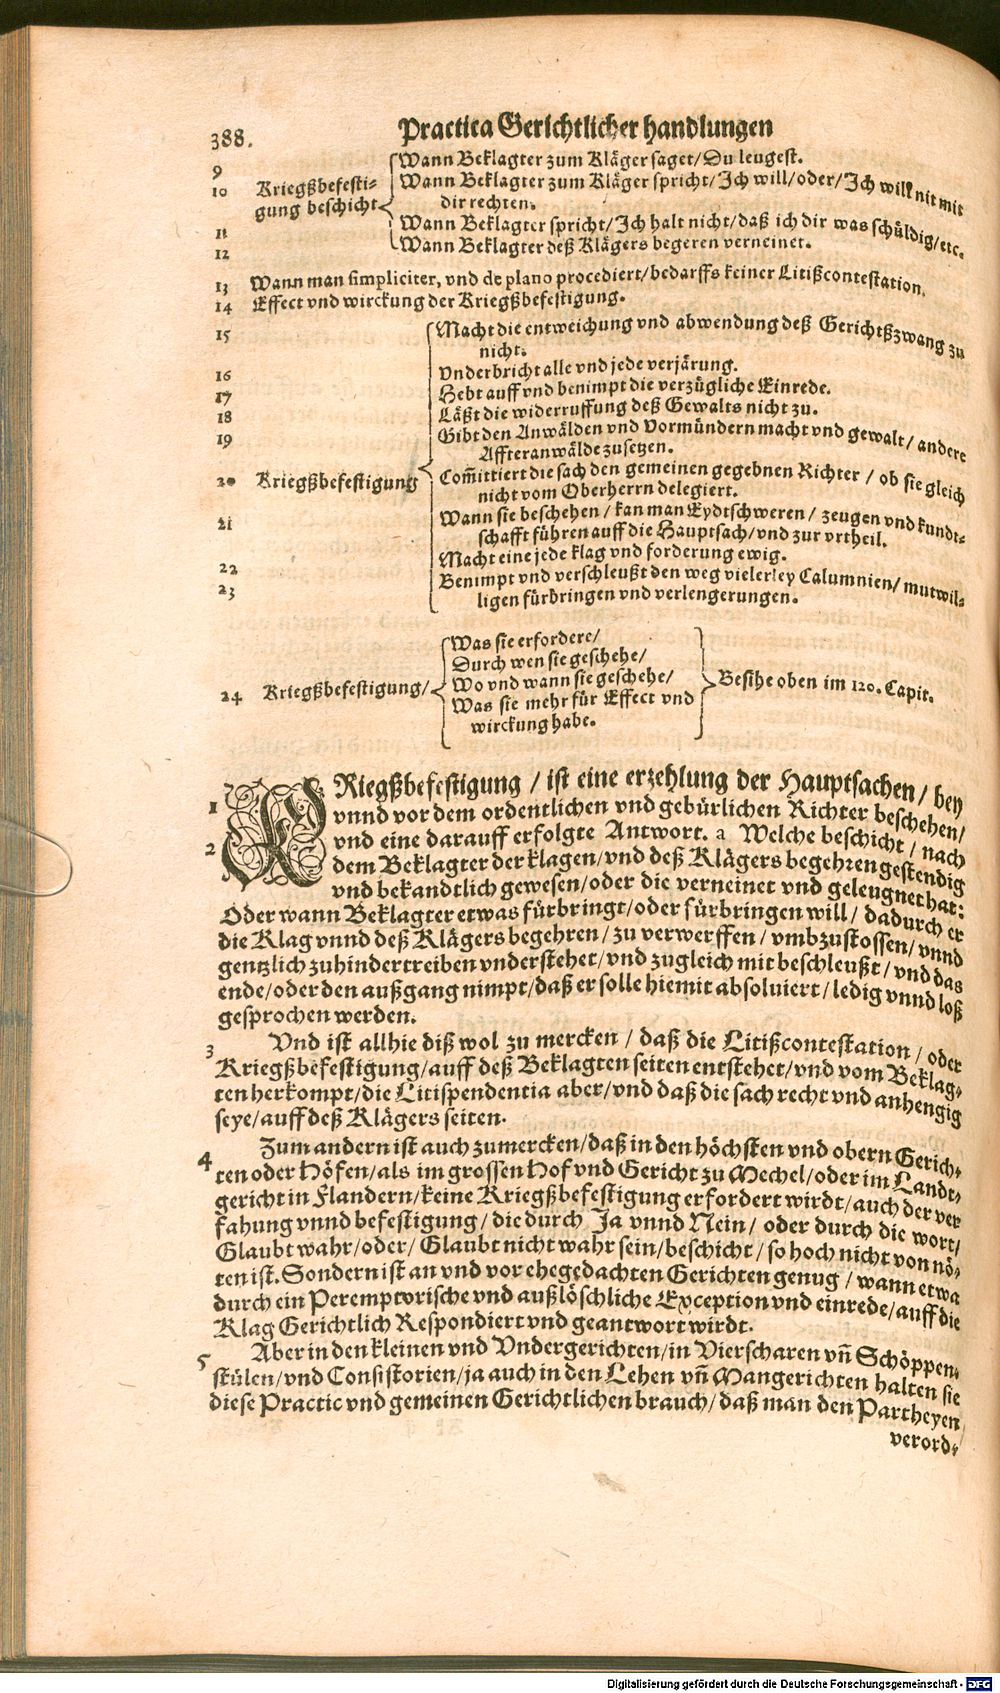 388.
Practica Gerichtlicher handlungen
9 Wann Beklagter zum Kläger saget/Du leugest.
10 Kriegßbefesti- Wann Beklagter zum Kläger spricht/Ich will/oder/Ich will nit mit
gung beschicht dir rechten.
11 Wann Beklagter spricht/Ich halt nicht/daß ich dir was schüldig/etc.
12 Wann Beklagter deß Klägers begeren verneinet.
13 Wann man simpliciter, vnd de plano procediert/bedarffs keiner Litißcontestation.
14 Effect vnd wirckung der Kriegßbefestigung.
15 Macht die entweichung vnd abwendung deß Gerichtßzwang zu
nicht.
16 Vnderbricht alle vnd jede verjärung.
17 Hebt auff vnd benimpt die verzügliche Einrede.
18 Läßt die widerruffung deß Gewalts nicht zu.
19 Gibt den Anwälden vnd Vormündern macht vnd gewalt/ andere
Affteranwälde zusetzen.
20 Kriegßbefestigung Com̃ittiert die sach den gemeinen gegebnen Richter / ob sie gleich
nicht vom Oberherrn delegiert.
21 Wann sie beschehen / kan man Eydtschweren / zeugen vnd kundt-
schafft führen auff die Hauptsach/vnd zur vrtheil.
22 Macht eine jede klag vnd forderung ewig.
23 Benimpt vnd verschleußt den weg vielerley Calumnien/ mutwil-
ligen fürbringen vnd verlengerungen.
Was sie erfordere/
Durch wen sie geschehe/
24 Kriegßbefestigung/ Wo vnd wann sie geschehe/ Besihe oben im 120. Capit.
Was sie mehr für Effect vnd
wirckung habe.
1 KRiegßbefestigung / ist eine erzehlung der Hauptsachen / bey
vnnd vor dem ordentlichen vnd gebürlichen Richter beschehen/
2 vnd eine darauff erfolgte Antwort. a Welche beschicht / nach
dem Beklagter der klagen/vnd deß Klägers begehren gestendig
vnd bekandtlich gewesen/oder die verneinet vnd geleugnet hat:
Oder wann Beklagter etwas fürbringt/oder fürbringen will/ dadurch er
die Klag vnnd deß Klägers begehren/ zu verwerffen / vmbzustossen/ vnnd
gentzlich zuhindertreiben vnderstehet/vnd zugleich mit beschleußt / vnd das
ende/oder den außgang nimpt/daß er solle hiemit absoluiert / ledig vnnd loß
gesprochen werden.
3 Vnd ist allhie diß wol zu mercken / daß die Litißcontestation / oder
Kriegßbefestigung/auff deß Beklagten seiten entstehet/vnd vom Beklag-
ten herkompt/die Litispendentia aber/vnd daß die sach recht vnd anhengig
seye/auff deß Klägers seiten.
4 Zum andern ist auch zumercken/daß in den höchsten vnd obern Gerich-
ten oder Höfen/als im grossen Hof vnd Gericht zu Mechel/oder im Landt-
gericht in Flandern/keine Kriegßbefestigung erfordert wirdt/auch der ver
fahung vnnd befestigung/die durch Ja vnnd Nein/ oder durch die wort/
Glaubt wahr/oder/ Glaubt nicht wahr sein/beschicht/so hoch nicht von nö-
ten ist. Sondern ist an vnd vor ehegedachten Gerichten genug / wann etwa
durch ein Peremptorische vnd außlöschliche Exception vnd einrede/auff die
Klag Gerichtlich Respondiert vnd geantwort wirdt.
5 Aber in den kleinen vnd Vndergerichten/in Vierscharen vñ Schöppen-
stülen/vnd Consistorien/ja auch in den Lehen vñ Mangerichten halten sie
diese Practic vnd gemeinen Gerichtlichen brauch/daß man den Partheyen
verord-
Digitalisierung gefördert durch die Deutsche Forschungsgemeinschaft - DFG